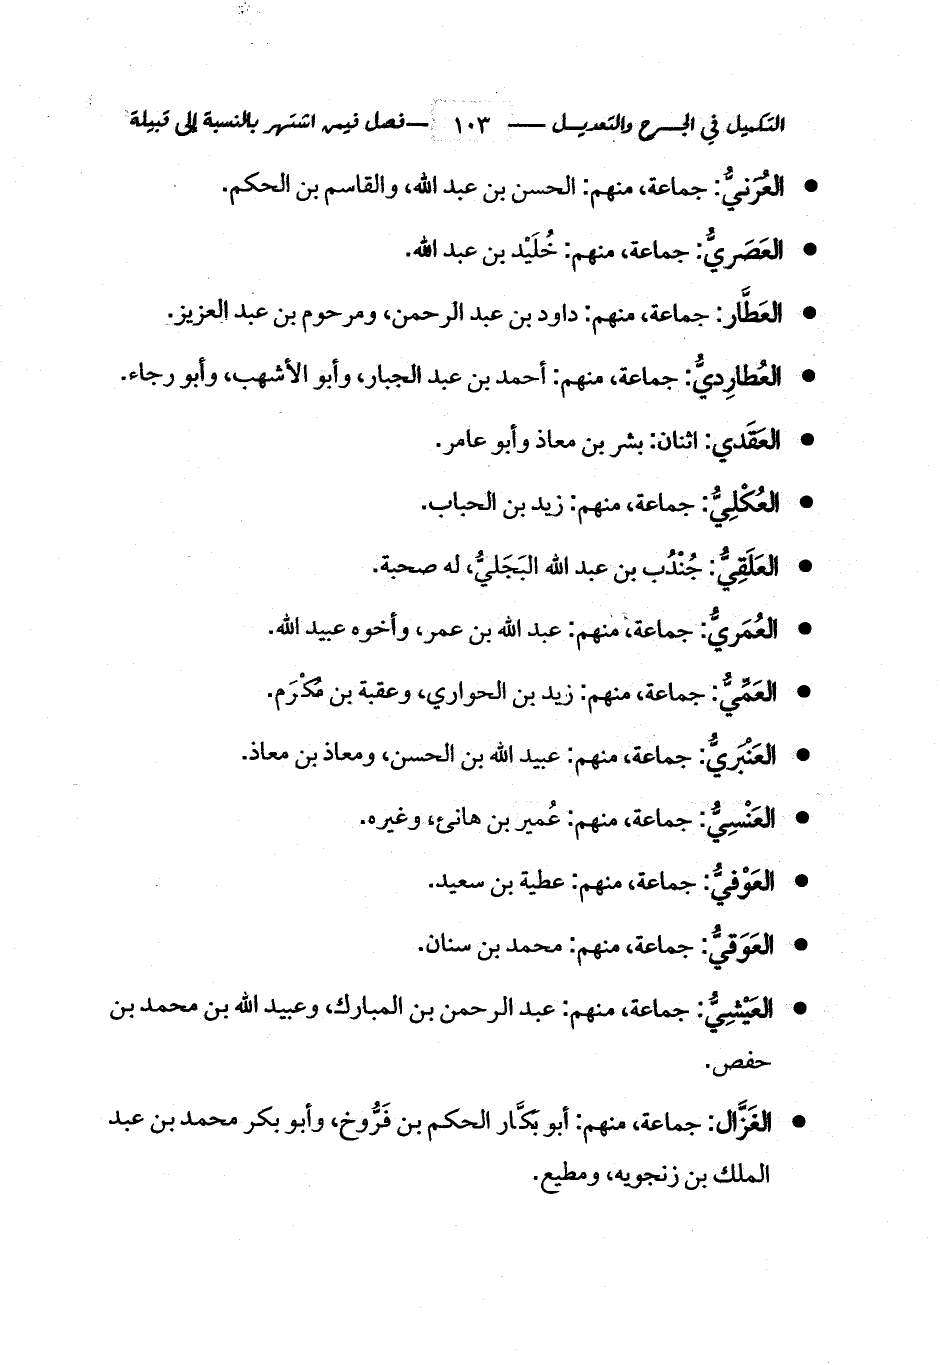 التكميل في الجرح والتعديل — ١٠٣ — فصل فيمن اشتهر بالنسبة إلى قبيلة
● العُرَنيُّ: جماعة، منهم: الحسن بن عبد الله، والقاسم بن الحكم.
● العَصَريُّ: جماعة، منهم: خُلَيْد بن عبد الله.
● العَطَّار: جماعة، منهم: داود بن عبد الرحمن، ومرحوم بن عبد العزيز.
● العُطارِديُّ: جماعة، منهم: أحمد بن عبد الجبار، وأبو الأشهب، وأبو رجاء.
● العَقَدي: اثنان: بشر بن معاذ وأبو عامر.
● العُكْلِيُّ: جماعة، منهم: زيد بن الحباب.
● العَلَقِيُّ: جُنْدُب بن عبد الله البَجَليُّ، له صحبة.
● العُمَريُّ: جماعة، منهم: عبد الله بن عمر، وأخوه عبيد الله.
● العَمِّيُّ: جماعة، منهم: زيد بن الحواري، وعقبة بن مُكْرَم.
● العَنْبَريُّ: جماعة، منهم: عبيد الله بن الحسن، ومعاذ بن معاذ.
● العَنْسِيُّ: جماعة، منهم: عُمير بن هانئ، وغيره.
● العَوْفيُّ: جماعة، منهم: عطية بن سعيد.
● العَوَقيُّ: جماعة، منهم: محمد بن سنان.
● العَيْشِيُّ: جماعة، منهم: عبد الرحمن بن المبارك، وعبيد الله بن محمد بن
حفص.
● الغَزَّال: جماعة، منهم: أبو بَكَّار الحكم بن فَرُّوخ، وأبو بكر محمد بن عبد
الملك بن زنجويه، ومطيع.